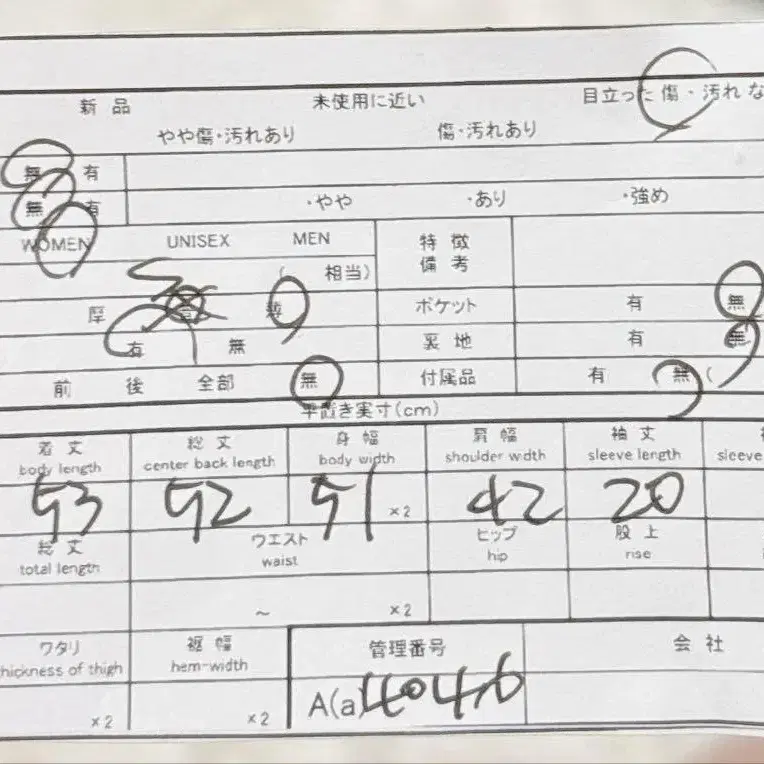 新品 未使用に近い 目立った傷・汚れな
やや傷・汚れあり 傷・汚れあり
無 有
無 有 ・やや ・あり ・強め
WOMEN UNISEX MEN 特徴
備考
( 相当)
厚 薄 ポケット 有 無
有 無 裏地 有 無
前 後 全部 無 付属品 有 無 (
平置き実寸(cm)
着丈 総丈 身幅 肩幅 袖丈
body length center back length body width shoulder wdth sleeve length sleeve
53 52 51 ×2 42 20
総丈 ウエスト ヒップ 股上
total length waist hip rise
~ ×2
ワタリ 裾幅 管理番号 会社
hickness of thigh hem-width
×2 ×2 A(a)